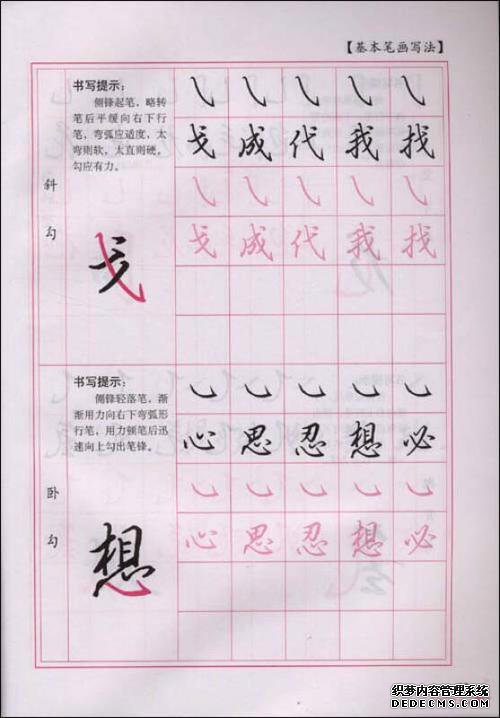 【基本笔画写法】
书写提示：
侧锋起笔，略转
笔后平缓向右下行
笔，弯弧应适度，太
弯则软，太直则硬，
勾应有力。
斜勾
戈
戈 成 代 我 找
戈 成 代 我 找
书写提示：
侧锋轻落笔，渐
渐用力向右下弯弧形
行笔，用力顿笔后迅
速向上勾出笔锋。
卧勾
想
心 思 忍 想 必
心 思 忍 想 必
织梦内容管理系统
DEDECMS.COM